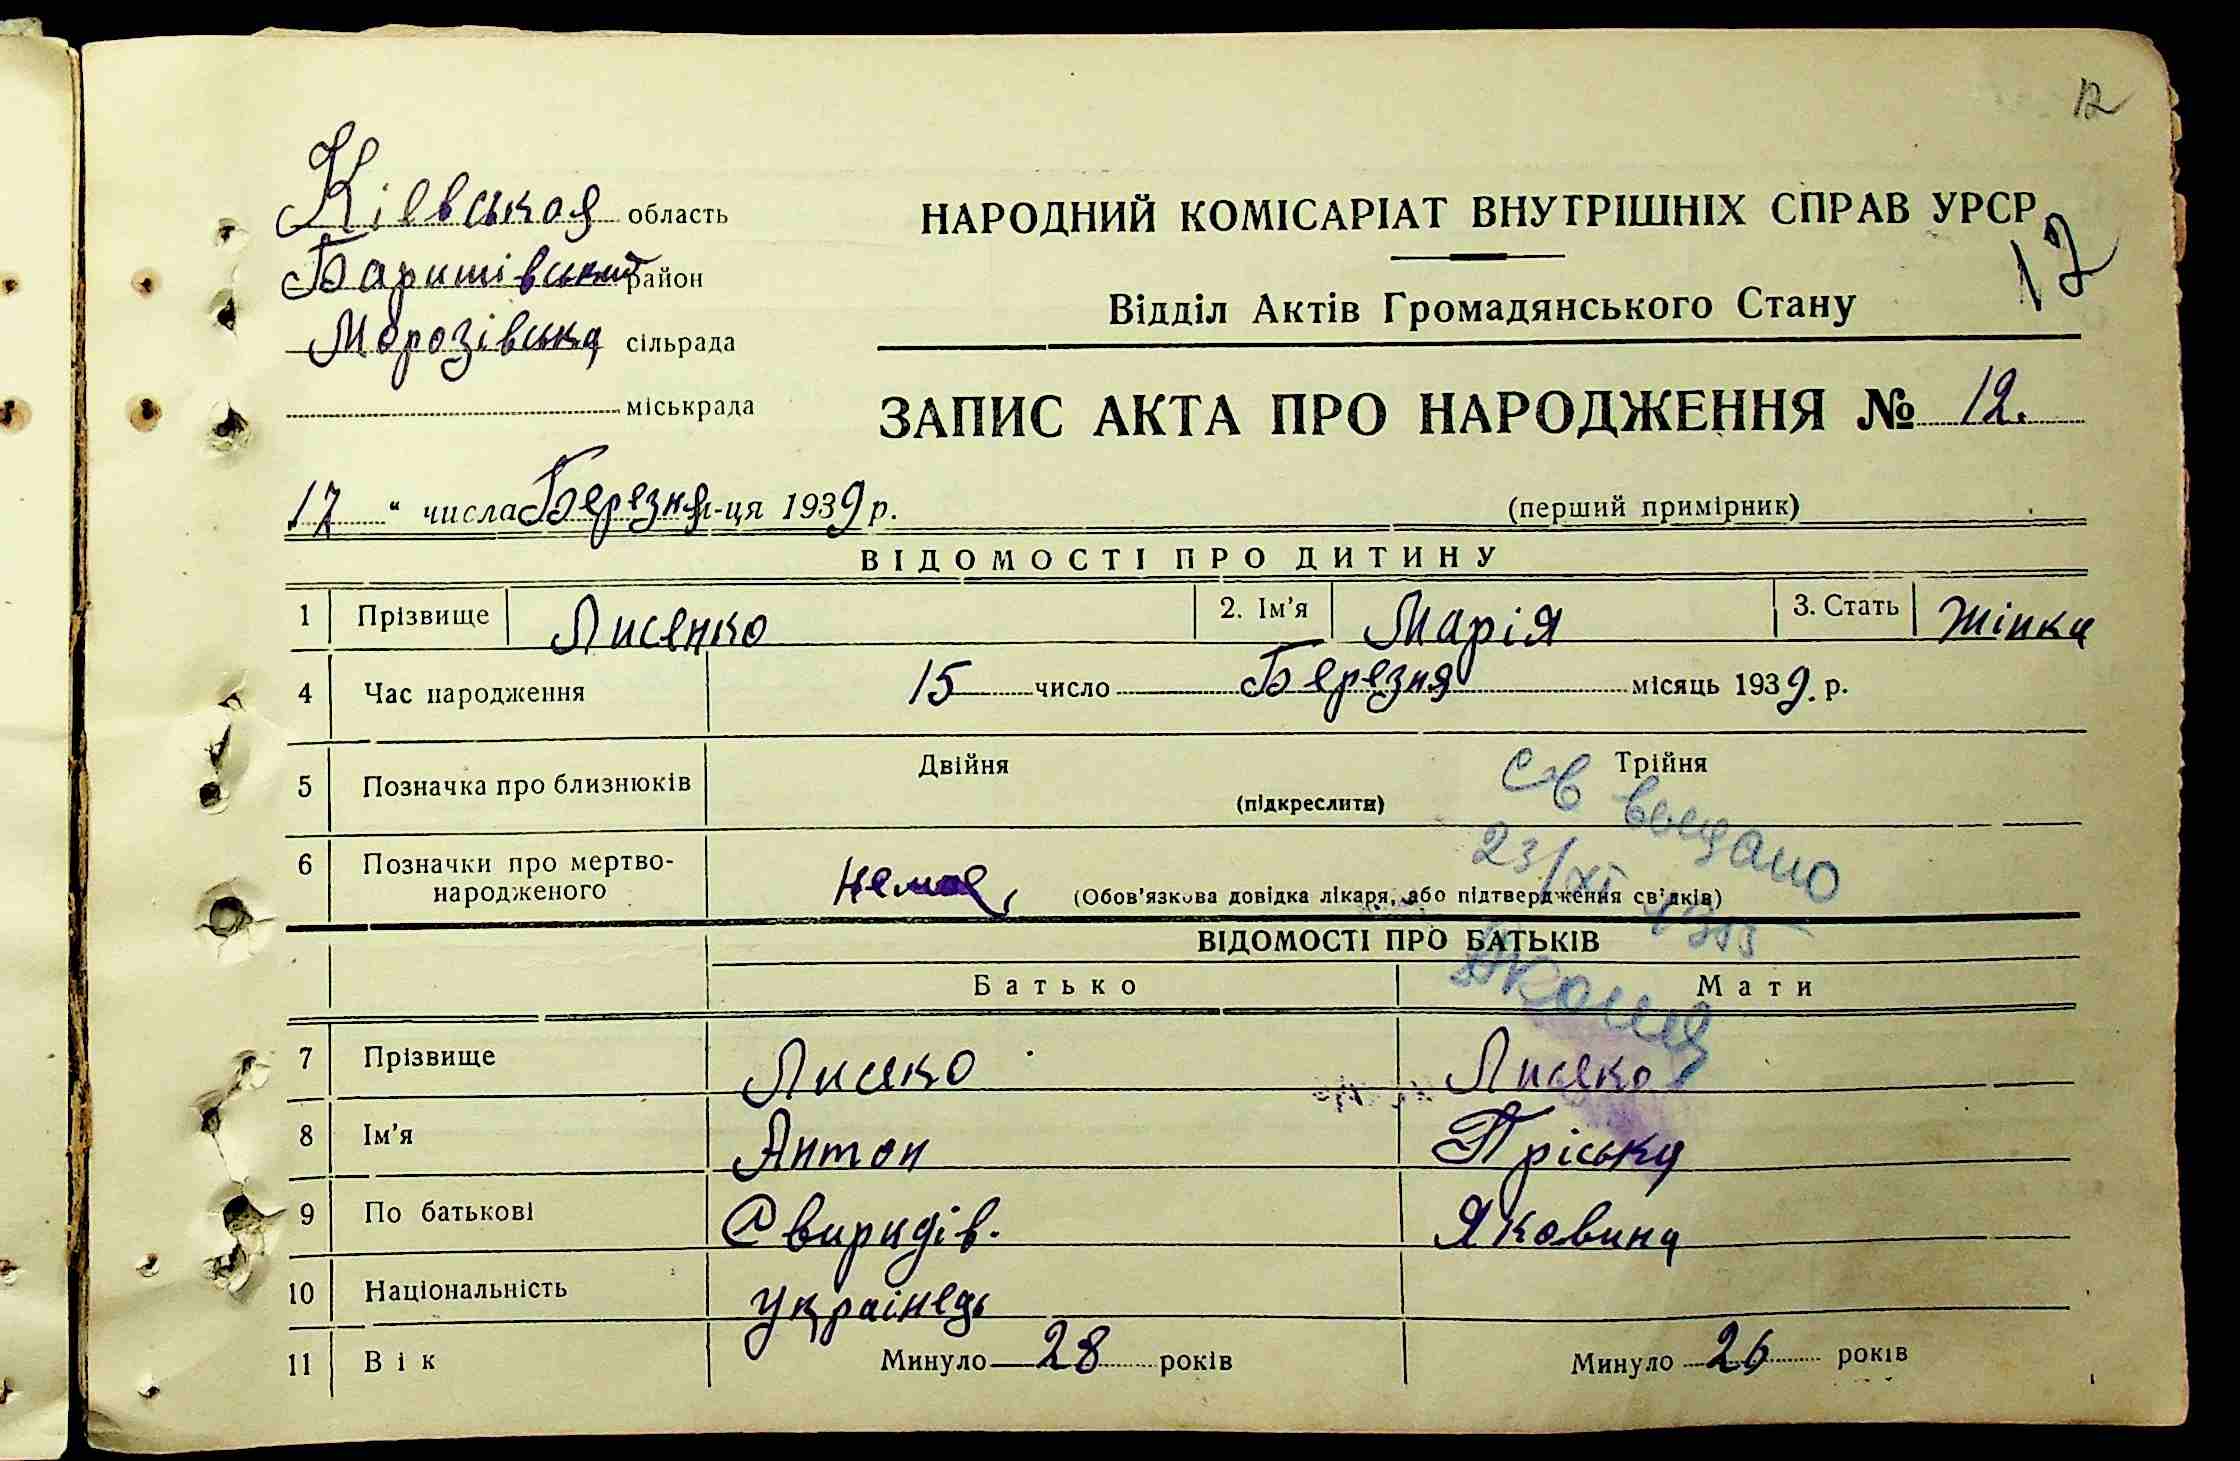 12
Київська область
НАРОДНИЙ КОМІСАРІАТ ВНУТРІШНІХ СПРАВ УРСР
Баришівський район
12
Відділ Актів Громадянського Стану
Морозівська сільрада
міськрада
ЗАПИС АКТА ПРО НАРОДЖЕННЯ № 12.
17 " числа Березня м-ця 1939 р.
(перший примірник)
ВІДОМОСТІ ПРО ДИТИНУ
1 Прізвище Лисенко 2. Ім'я Марія 3. Стать Жінка
4 Час народження 15 число Березня місяць 1939. р.
5 Позначка про близнюків Двійня Трійня
(підкреслити)
6 Позначки про мертво-
народженого немає, (Обов'язкова довідка лікаря, або підтвердження св'дків)
23/XI
ВІДОМОСТІ ПРО БАТЬКІВ
Батько Мати
7 Прізвище Лисеко Лисеко
8 Ім'я Антон Пріська
9 По батькові Свиридів. Яковина
10 Національність Українець
11 Вік Минуло 28 років Минуло 26 років